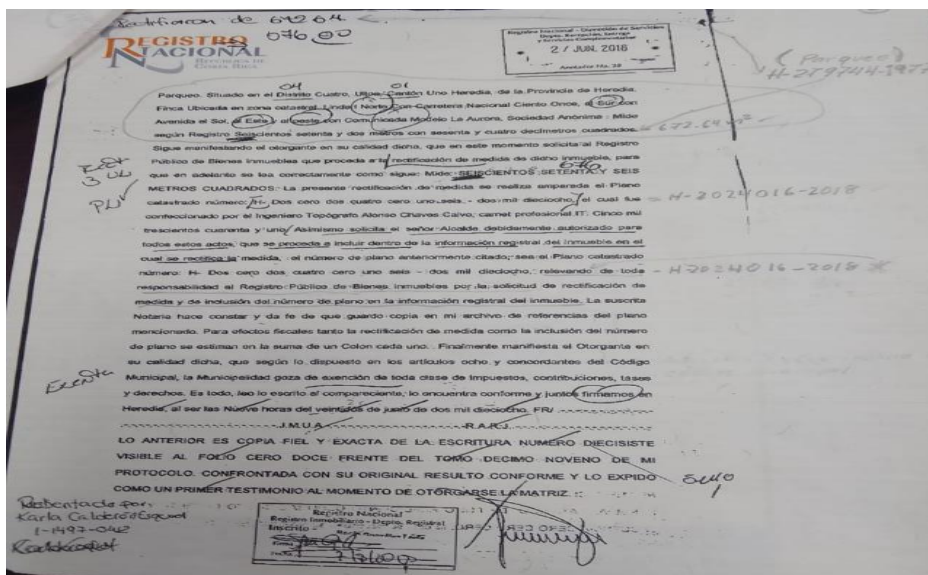 Rectificaron de 67264
676,00
REGISTRO
NACIONAL
REPÚBLICA DE
COSTA RICA
Registro Nacional - Dirección de Servicios
2 / JUN. 2018
(Parqueo)
04 01
Parqueo. Situado en el Distrito Cuatro, Ulloa, Cantón Uno Heredia, de la Provincia de Heredia.
Finca Ubicada en zona catastral. Linda: Norte Con Carretera Nacional Ciento Once, el Sur con
Avenida el Sol, el Este y al oeste con Comunidad Modelo La Aurora, Sociedad Anónima: Mide
según Registro Seiscientos setenta y dos metros con sesenta y cuatro decímetros cuadrados. = 672.64 m²
Sigue manifestando el otorgante en su calidad dicha, que en este momento solicita al Registro
Público de Bienes Inmuebles que proceda a la rectificación de medida de dicho inmueble, para
676
que en adelante se lea correctamente como sigue: Mide: SEISCIENTOS SETENTA Y SEIS
METROS CUADRADOS: La presente rectificación de medida se realiza amparada el Plano
catastrado número: H- Dos cero dos cuatro cero uno seis - dos mil dieciocho, el cual fue = H-2024016-2018
confeccionado por el Ingeniero Topógrafo Alonso Chaves Calvo, carnet profesional IT. Cinco mil
trescientos cuarenta y uno/ Asimismo solicita el señor Alcalde debidamente autorizado para
todos estos actos, que se proceda a incluir dentro de la información registral del inmueble en el
cual se rectifica la medida, el número de plano anteriormente citado, sea el Plano catastrado
número: H- Dos cero dos cuatro cero uno seis - dos mil dieciocho, relevando de toda - H2024016-2018
responsabilidad al Registro Público de Bienes Inmuebles por la solicitud de rectificación de
medida y de inclusión del número de plano en la información registral del inmueble. La suscrita
Notaria hace constar y da fe de que guardo copia en mi archivo de referencias del plano
mencionado. Para efectos fiscales tanto la rectificación de medida como la inclusión del número
de plano se estiman en la suma de un Colon cada uno. Finalmente manifiesta el Otorgante en
su calidad dicha, que según lo dispuesto en los artículos ocho y concordantes del Código
Exenta
Municipal, la Municipalidad goza de exención de toda clase de Impuestos, contribuciones, tasas
y derechos. Es todo, leo lo escrito al compareciente, lo encuentra conforme y juntos firmamos en
Heredia, al ser las Nueve horas del veintidos de junio de dos mil dieciocho. FR/
J.M.U.A R.A.R.J
LO ANTERIOR ES COPIA FIEL Y EXACTA DE LA ESCRITURA NUMERO DIECISISTE
VISIBLE AL FOLIO CERO DOCE FRENTE DEL TOMO DECIMO NOVENO DE MI
PROTOCOLO. CONFRONTADA CON SU ORIGINAL RESULTO CONFORME Y LO EXPIDO
COMO UN PRIMER TESTIMONIO AL MOMENTO DE OTORGARSE LA MATRIZ.
Karla
Registro Nacional
Registro Inmobiliario - Depto. Registral
Inscrito